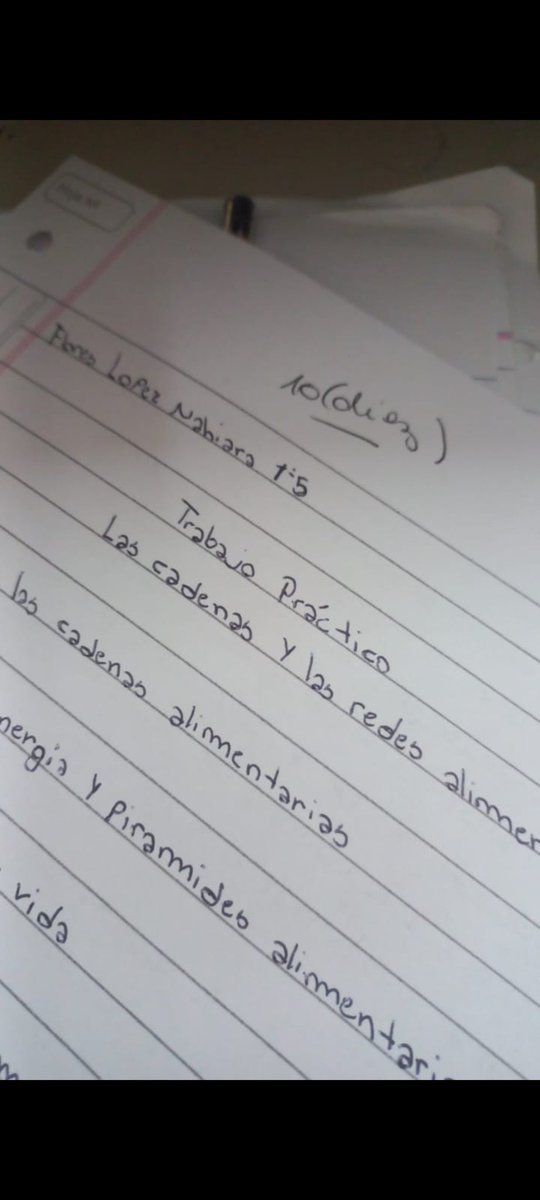 Hoja Nº
10 (diez)
Flores Lopez Nahiara 1º5
Trabajo Práctico
Las cadenas y las redes alimen
las cadenas alimentarias
nergia y Piramides alimentari
vida